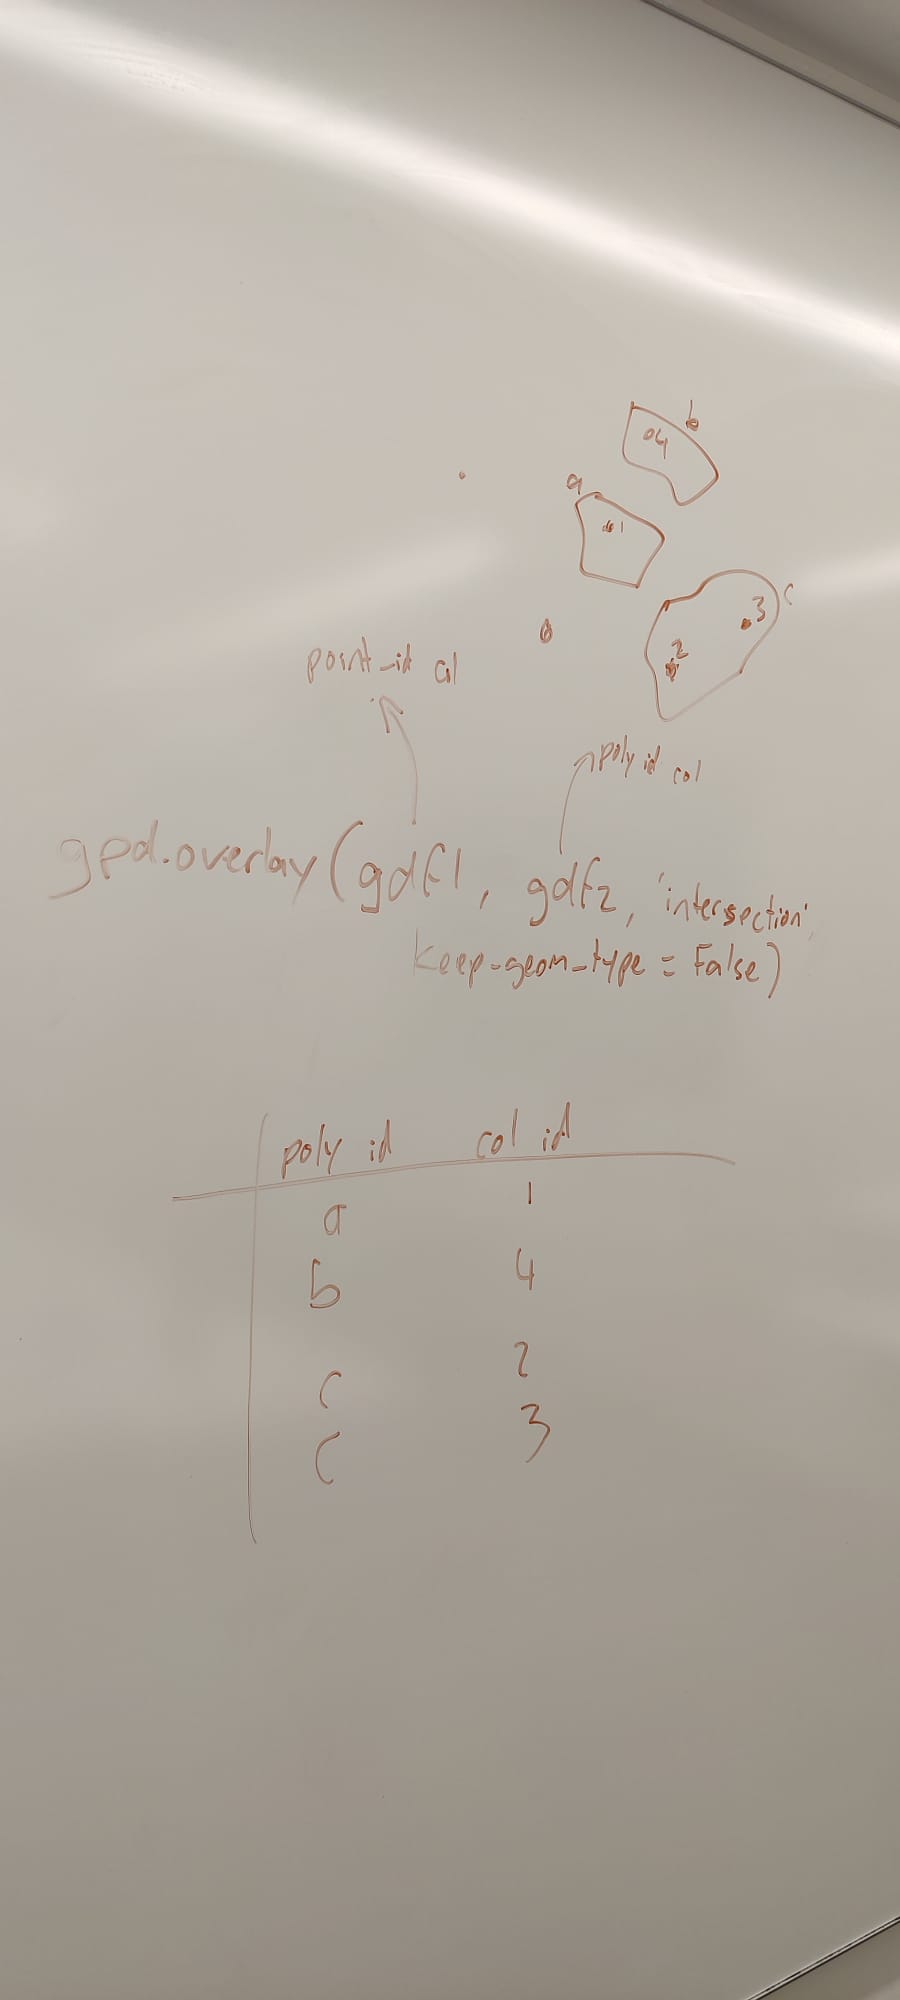 b
04
a
1
3 c
2
point_id col
poly id col
gpd.overlay(gdf1, gdf2, 'intersection',
keep_geom_type = False)
poly id col id
a 1
b 4
c 2
c 3